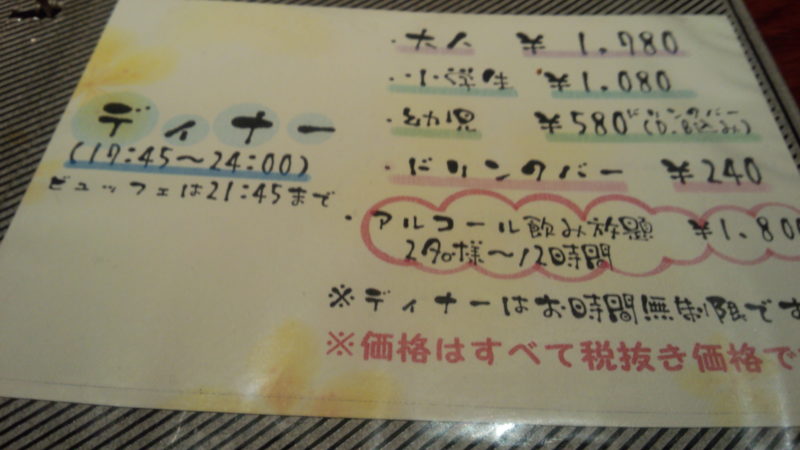 ディナー
(17:45～24:00)
ビュッフェは21:45まで
・大人 ¥1,980
・小学生 ¥1,080
・幼児 ¥580 ドリンクバー(D.B込み)
・ドリンクバー ¥240
・アルコール飲み放題 ¥1,80
2名様～ 12時間
※ディナーはお時間無制限です
※価格はすべて税抜き価格で